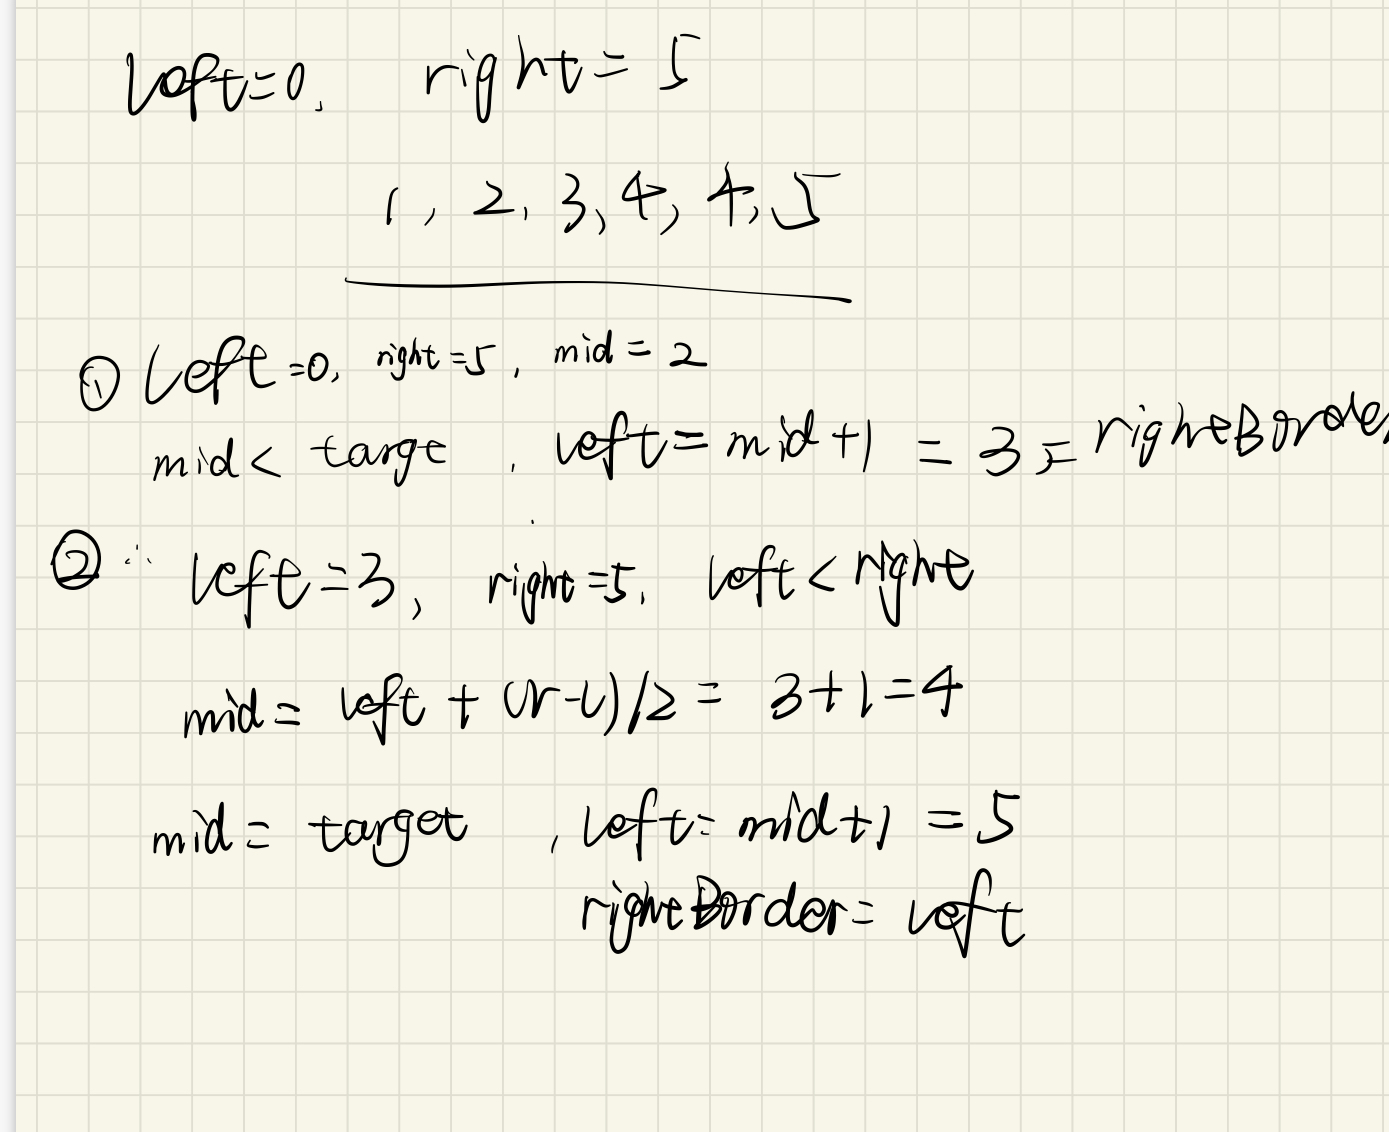 left=0, right=5
1, 2, 3, 4, 4, 5
① left=0, right=5, mid=2
mid< targe, left=mid+1 =3,=righeBorder
② ∴ left=3, right=5, left<right
mid= left+(r-l)/2= 3+1=4
mid= target, left=mid+1 =5
righeBorder= left